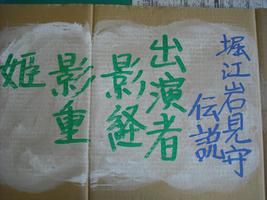 堀江岩見守
伝説
出演者
影経
影重
姫